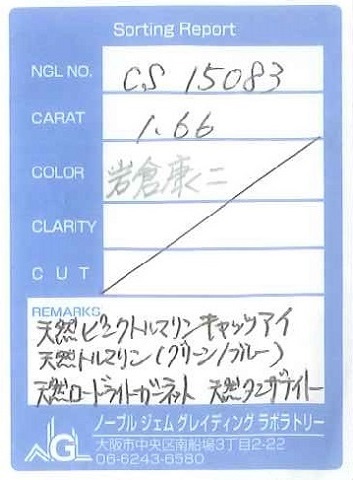 Sorting Report
NGL NO. CS 15083
CARAT 1.66
COLOR 岩倉康二
CLARITY
CUT
REMARKS
天然ピンクトルマリンキャッツアイ
天然トルマリン(グリーン/ブルー)
天然ロードライトガーネット 天然タンザナイト
NGL ノーブル ジェム グレイディング ラボラトリー
大阪市中央区南船場3丁目2-22
06-6243-6580